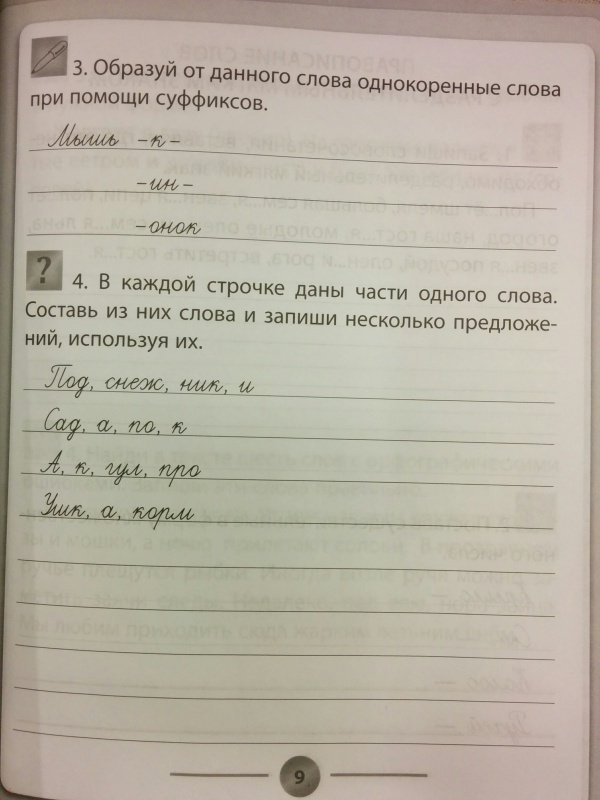 3. Образуй от данного слова однокоренные слова
при помощи суффиксов.
Мышь -к-
-ин-
-онок
? 4. В каждой строчке даны части одного слова.
Составь из них слова и запиши несколько предложе-
ний, используя их.
Под, снеж, ник, и
Сад, а, по, к
А, к, гул, про
Ушк, а, корм
9